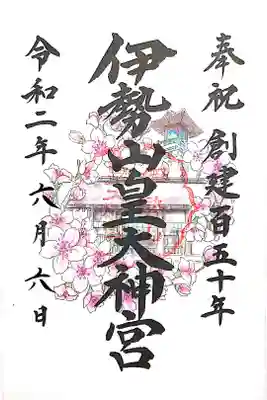 奉祝 創建百五十年
伊勢山皇大神宮
令和二年六月六日